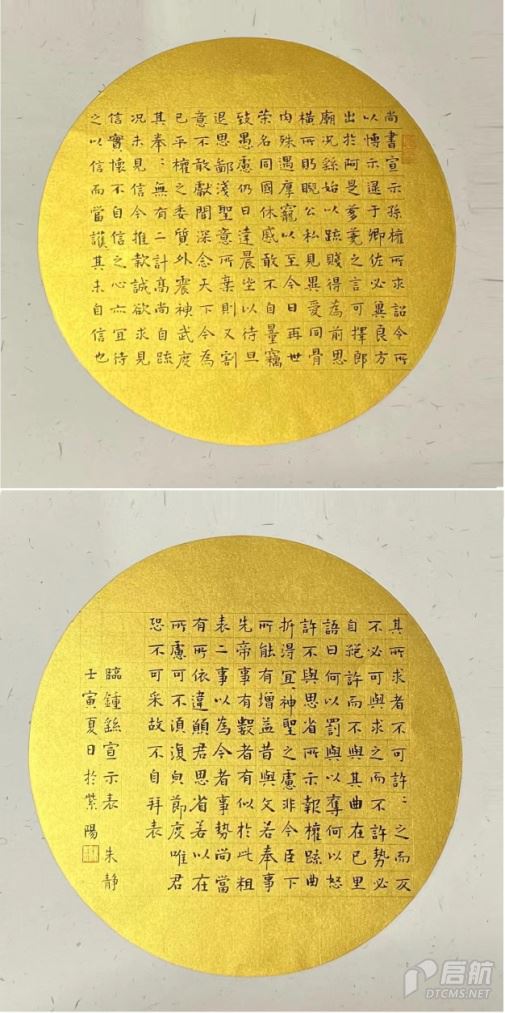 尚書宣示孫權所求詔令所
以博示逮于卿佐必冀良方
出於阿是芻蕘之言可擇郎
廟況繇始以疏賤得為前恩
橫所盼睨公私見異愛同骨
內殊遇厚寵以至今日再世
榮名同國休慼敢不自量竊
致愚慮仍日達晨坐以待旦
退思鄙淺聖意所棄則又割
意不敢獻聞深念天下今為
已平權之委質外震神武度
其奉〻無有二計高尚自疏
況未見信今推款誠欲求見
信實懷不自信之心亦宜待
之以信而當護其未自信也
其所求者不可許〻之而反
不必可與求之而不許勢必
自絕許而不與其曲在已里
語曰何以罰與以奪何以怒
許不與思省所示報權疏曲
折得宜神聖之慮非今臣下
所能有增益昔與文若奉事
先帝事有數者有似於此粗
表二事以為今者事勢尚當
有所依違願君思省若以在
所慮可不須復皃節度唯君
恐不可采故不自拜表
臨鍾繇宣示表 朱靜
壬寅夏日於紫陽
启航
DTCMS.NET